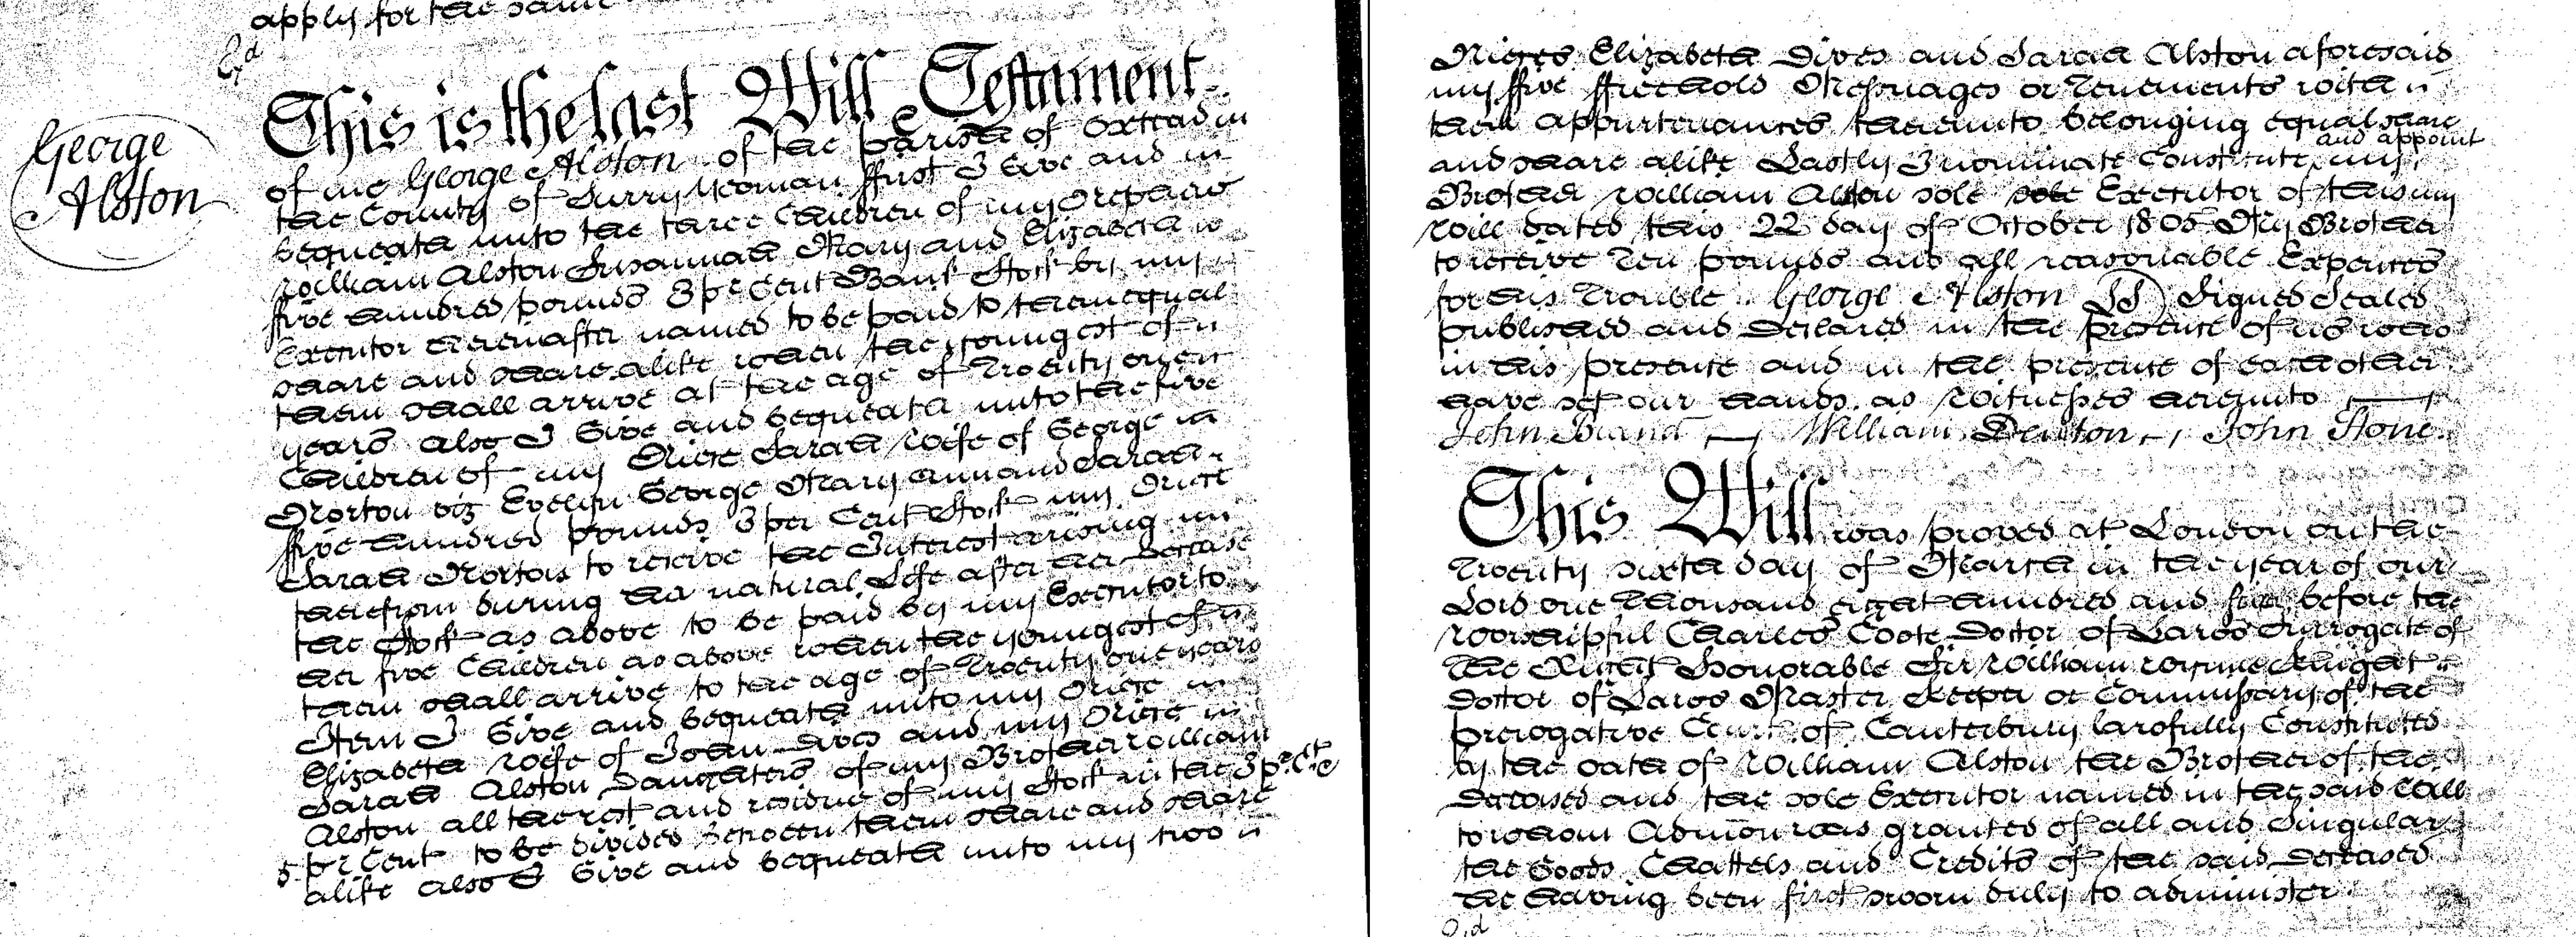 apply for the same
Ex.d
George
Alston
This is the last Will & Testament
of me George Alston of the parish of Oxtead in
the County of Surry Yeoman ffirst I Give and
bequeath unto the three Children of my Nephew
William Alston Susannah Mary and Elizabeth
ffive hundred pounds 3 pr Cent Bank Stock by my
Executor hereinafter named to be paid to them equal
share and share alike when the youngest of
them shall arrive at the age of Twenty one
years also I Give and bequeath unto the five
Children of my Niece Sarah wife of George
Morton viz Evelyn George Mary Ann and Sarah
ffive hundred pounds 3 per Cent Stock my Niece
Sarah Morton to receive the Interest arising
therefrom during her natural Life after her Decease
the Stock as above to be paid by my Executor to
her five Children as above when the youngest of
them shall arrive to the age of Twenty one years
Item I Give and bequeath unto my Niece
Elizabeth wife of John Dives and my Niece
Sarah Alston Daughters of my Brother William
Alston all the rest and residue of my Stock in the 3 pr Ct &
5 pr Cent to be divided between them share and share
alike also I Give and bequeath unto my two
Nieces Elizabeth Dives and Sarah Alston aforesaid
my ffive ffreehold Messuages or Tenements with
their appurtenances thereunto belonging equal share
and share alike Lastly I nominate Constitute and appoint my
Brother William Alston sole sole Executor of this my
Will dated this 22 day of October 1805 My Brother
to receive Ten pounds and all reasonable Expences
for his Trouble George Alston LS Signed Sealed
published and declared in the presence of us who
in his presence and in the presence of each other
have set our hands as Witnesses hereunto
John Brand William Denton John Stone
This Will was proved at London on the
Twenty sixth day of March in the year of our
Lord one Thousand eight hundred and before the
worshipful Charles Coote Doctor of Laws Surrogate of
The Right Honorable Sir William Wynne Knight
Doctor of Laws Master Keeper or Commissary of the
Prerogative Court of Canterbury lawfully Constituted
by the oath of William Alston the Brother of the
Deceased and the sole Executor named in the said Will
to whom Admōn was granted of all and Singular
the Goods Chattels and Credits of the said Deceased
he having been first sworn duly to administer